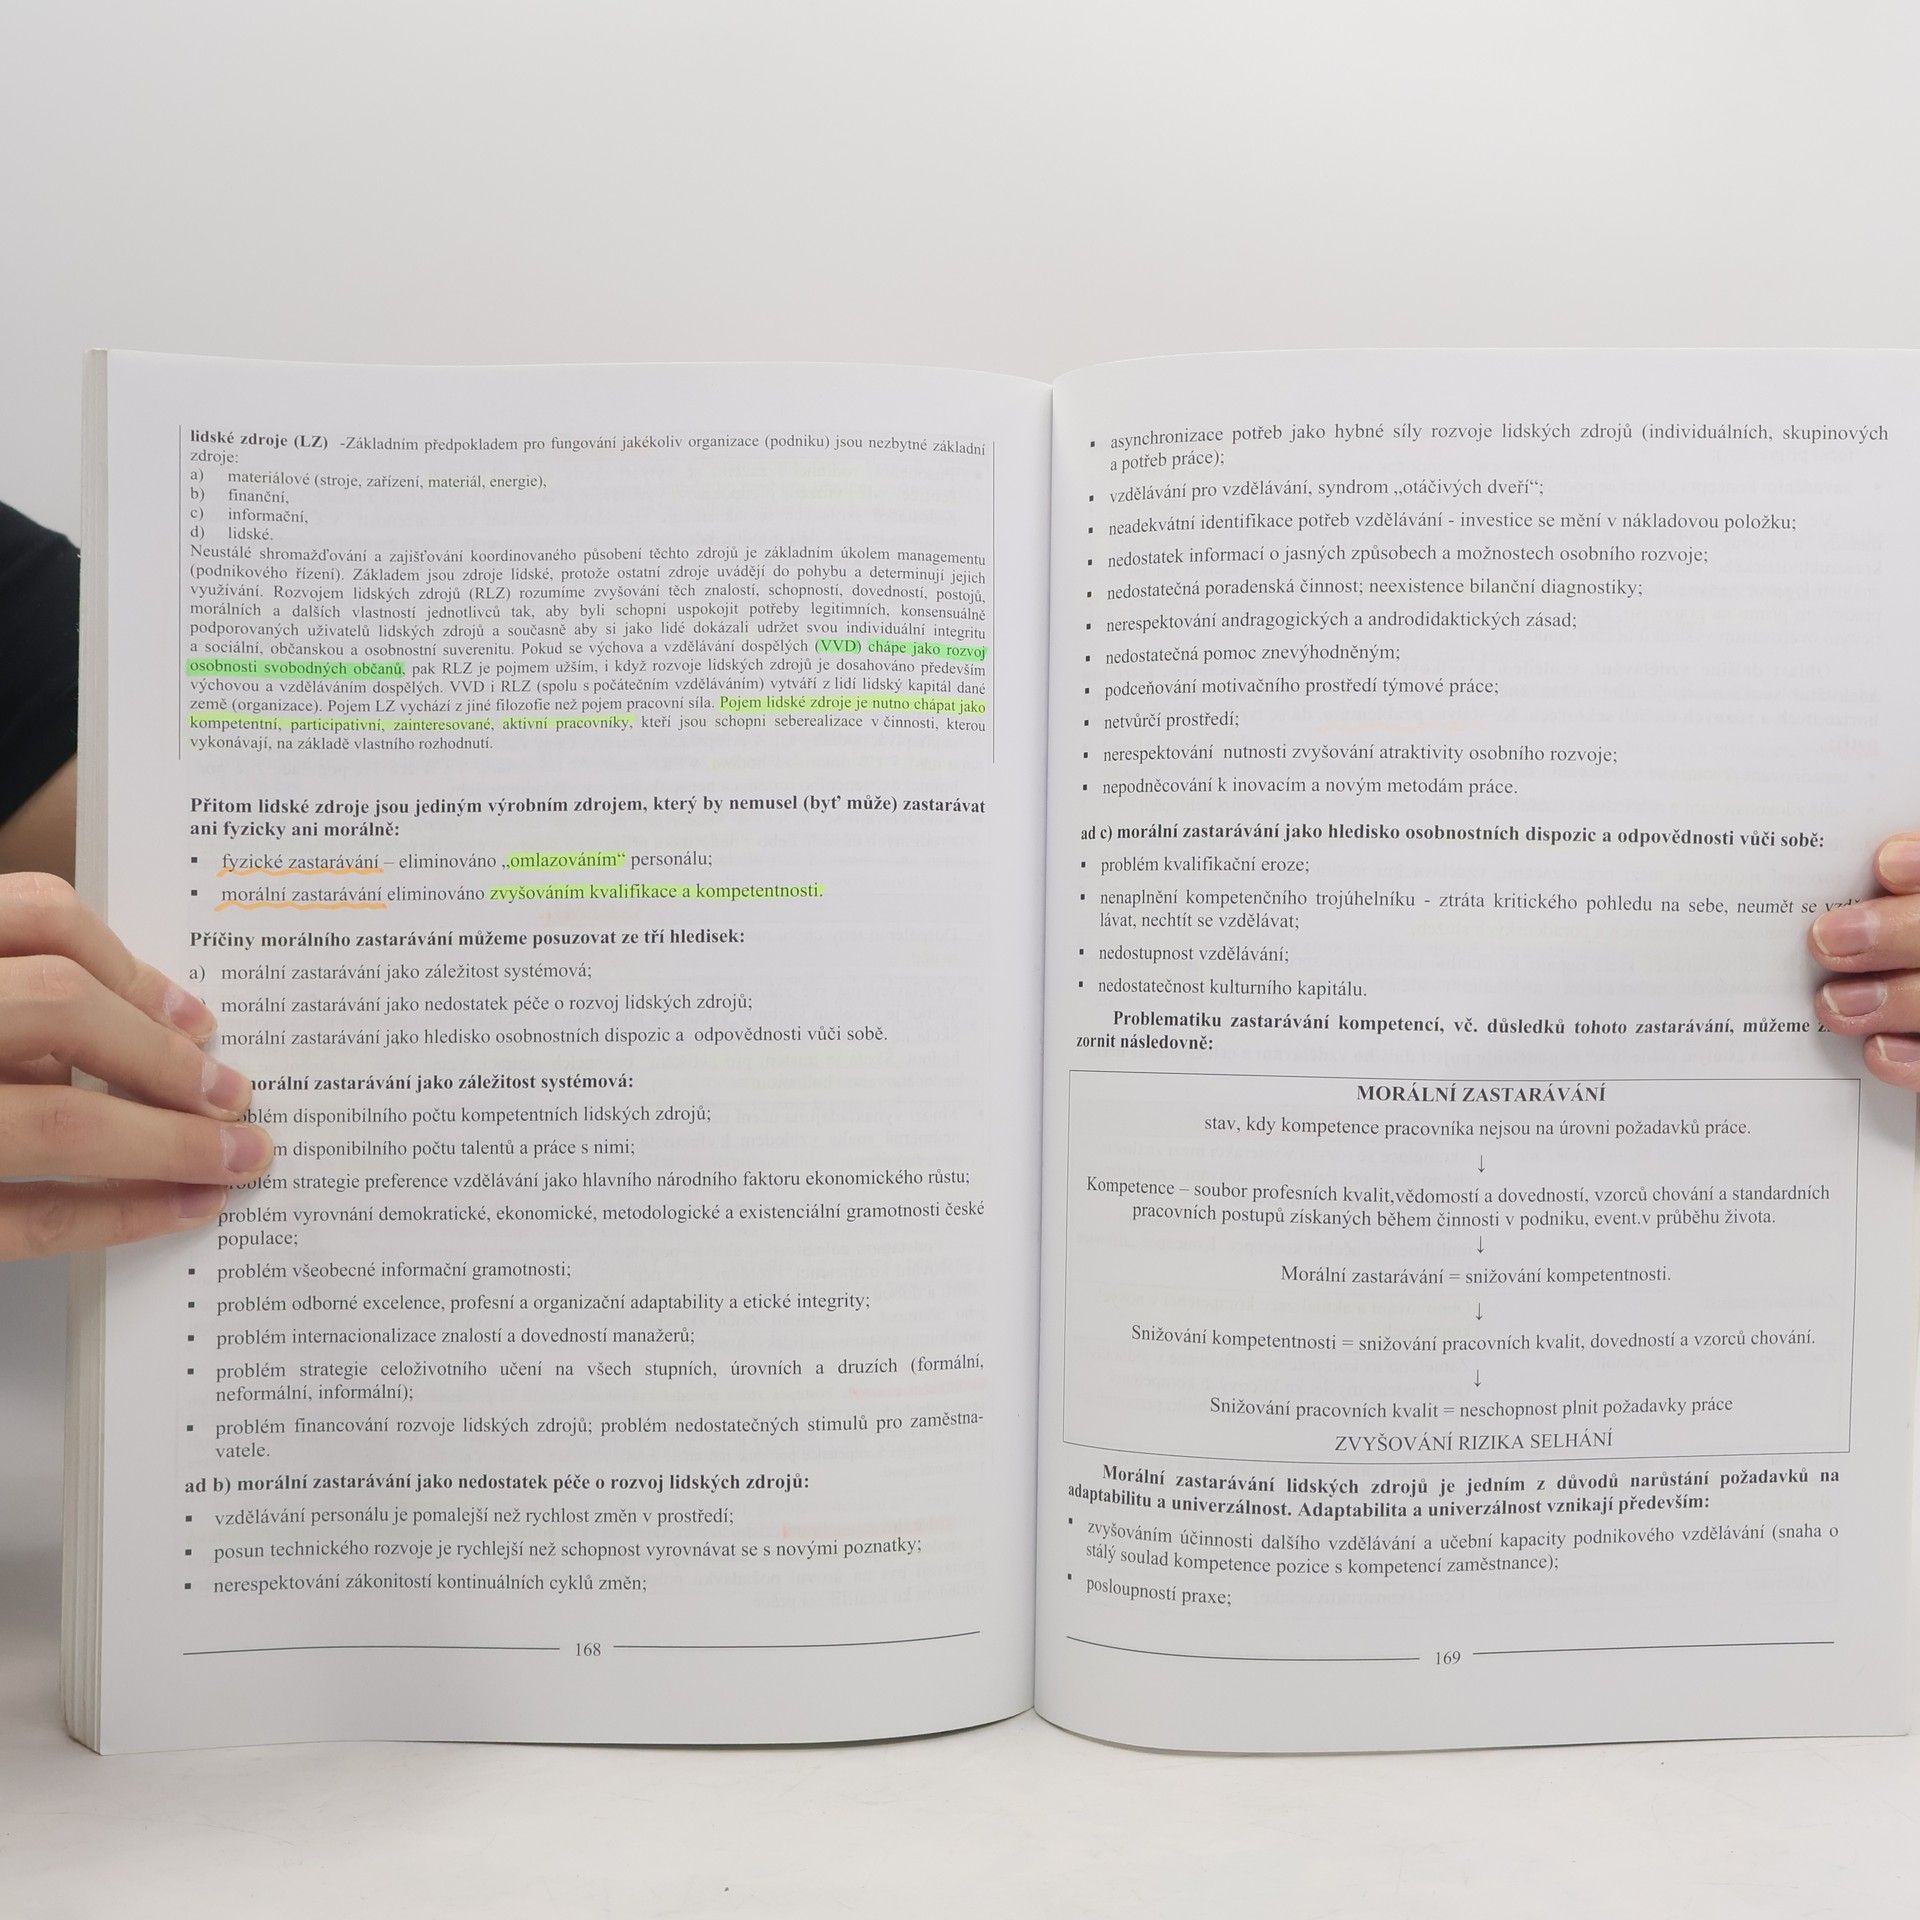 lidské zdroje (LZ) -Základním předpokladem pro fungování jakékoliv organizace (podniku) jsou nezbytné základní
zdroje:
a) materiálové (stroje, zařízení, materiál, energie),
b) finanční,
c) informační,
d) lidské.
Neustálé shromažďování a zajišťování koordinovaného působení těchto zdrojů je základním úkolem managementu
(podnikového řízení). Základem jsou zdroje lidské, protože ostatní zdroje uvádějí do pohybu a determinují jejich
využívání. Rozvojem lidských zdrojů (RLZ) rozumíme zvyšování těch znalostí, schopností, dovedností, postojů,
morálních a dalších vlastností jednotlivců tak, aby byli schopni uspokojit potřeby legitimních, konsensuálně
podporovaných uživatelů lidských zdrojů a současně aby si jako lidé dokázali udržet svou individuální integritu
a sociální, občanskou a osobnostní suverenitu. Pokud se výchova a vzdělávání dospělých (VVD) chápe jako rozvoj
osobnosti svobodných občanů, pak RLZ je pojmem užším, i když rozvoje lidských zdrojů je dosahováno především
výchovou a vzděláváním dospělých. VVD i RLZ (spolu s počátečním vzděláváním) vytváří z lidí lidský kapitál dané
země (organizace). Pojem LZ vychází z jiné filozofie než pojem pracovní síla. Pojem lidské zdroje je nutno chápat jako
kompetentní, participativní, zainteresované, aktivní pracovníky, kteří jsou schopni seberealizace v činnosti, kterou
vykonávají, na základě vlastního rozhodnutí.
Přitom lidské zdroje jsou jediným výrobním zdrojem, který by nemusel (byť může) zastarávat
ani fyzicky ani morálně:
▪ fyzické zastarávání – eliminováno „omlazováním“ personálu;
▪ morální zastarávání eliminováno zvyšováním kvalifikace a kompetentnosti.
Příčiny morálního zastarávání můžeme posuzovat ze tří hledisek:
a) morální zastarávání jako záležitost systémová;
) morální zastarávání jako nedostatek péče o rozvoj lidských zdrojů;
morální zastarávání jako hledisko osobnostních dispozic a odpovědnosti vůči sobě.
morální zastarávání jako záležitost systémová:
blém disponibilního počtu kompetentních lidských zdrojů;
m disponibilního počtu talentů a práce s nimi;
problém strategie preference vzdělávání jako hlavního národního faktoru ekonomického růstu;
problém vyrovnání demokratické, ekonomické, metodologické a existenciální gramotnosti české
populace;
▪ problém všeobecné informační gramotnosti;
▪ problém odborné excelence, profesní a organizační adaptability a etické integrity;
▪ problém internacionalizace znalostí a dovedností manažerů;
▪ problém strategie celoživotního učení na všech stupních, úrovních a druzích (formální,
neformální, informální);
▪ problém financování rozvoje lidských zdrojů; problém nedostatečných stimulů pro zaměstna-
vatele.
ad b) morální zastarávání jako nedostatek péče o rozvoj lidských zdrojů:
▪ vzdělávání personálu je pomalejší než rychlost změn v prostředí;
▪ posun technického rozvoje je rychlejší než schopnost vyrovnávat se s novými poznatky;
▪ nerespektování zákonitostí kontinuálních cyklů změn;
168
▪ asynchronizace potřeb jako hybné síly rozvoje lidských zdrojů (individuálních, skupinových
a potřeb práce);
▪ vzdělávání pro vzdělávání, syndrom „otáčivých dveří“;
▪ neadekvátní identifikace potřeb vzdělávání - investice se mění v nákladovou položku;
▪ nedostatek informací o jasných způsobech a možnostech osobního rozvoje;
▪ nedostatečná poradenská činnost; neexistence bilanční diagnostiky;
▪ nerespektování andragogických a androdidaktických zásad;
▪ nedostatečná pomoc znevýhodněným;
▪ podceňování motivačního prostředí týmové práce;
▪ netvůrčí prostředí;
▪ nerespektování nutnosti zvyšování atraktivity osobního rozvoje;
▪ nepodněcování k inovacím a novým metodám práce.
ad c) morální zastarávání jako hledisko osobnostních dispozic a odpovědnosti vůči sobě:
▪ problém kvalifikační eroze;
▪ nenaplnění kompetenčního trojúhelníku - ztráta kritického pohledu na sebe, neumět se vzdě-
lávat, nechtít se vzdělávat;
▪ nedostupnost vzdělávání;
▪ nedostatečnost kulturního kapitálu.
Problematiku zastarávání kompetencí, vč. důsledků tohoto zastarávání, můžeme z
zornit následovně:
MORÁLNÍ ZASTARÁVÁNÍ
stav, kdy kompetence pracovníka nejsou na úrovni požadavků práce.
↓
Kompetence – soubor profesních kvalit,vědomostí a dovedností, vzorců chování a standardních
pracovních postupů získaných během činnosti v podniku, event.v průběhu života.
↓
Morální zastarávání = snižování kompetentnosti.
↓
Snižování kompetentnosti = snižování pracovních kvalit, dovedností a vzorců chování.
↓
Snižování pracovních kvalit = neschopnost plnit požadavky práce
ZVYŠOVÁNÍ RIZIKA SELHÁNÍ
Morální zastarávání lidských zdrojů je jedním z důvodů narůstání požadavků na
adaptabilitu a univerzálnost. Adaptabilita a univerzálnost vznikají především:
▪ zvyšováním účinnosti dalšího vzdělávání a učební kapacity podnikového vzdělávání (snaha o
stálý soulad kompetence pozice s kompetencí zaměstnance);
▪ posloupností praxe;
169